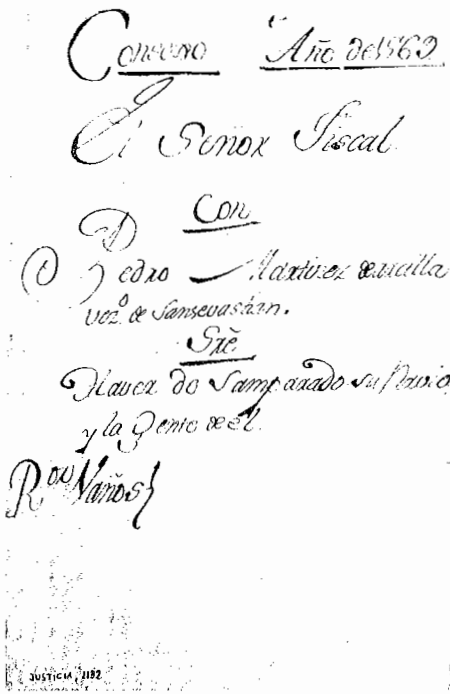 Consejo Año de 1569
El Señor Fiscal
Con
Pedro Martinez
vez.º de Sansevastian.
Sre
Haver Desamparado su Navio
y la Gente de él.
R.on Vaños
JUSTICIA, 1182